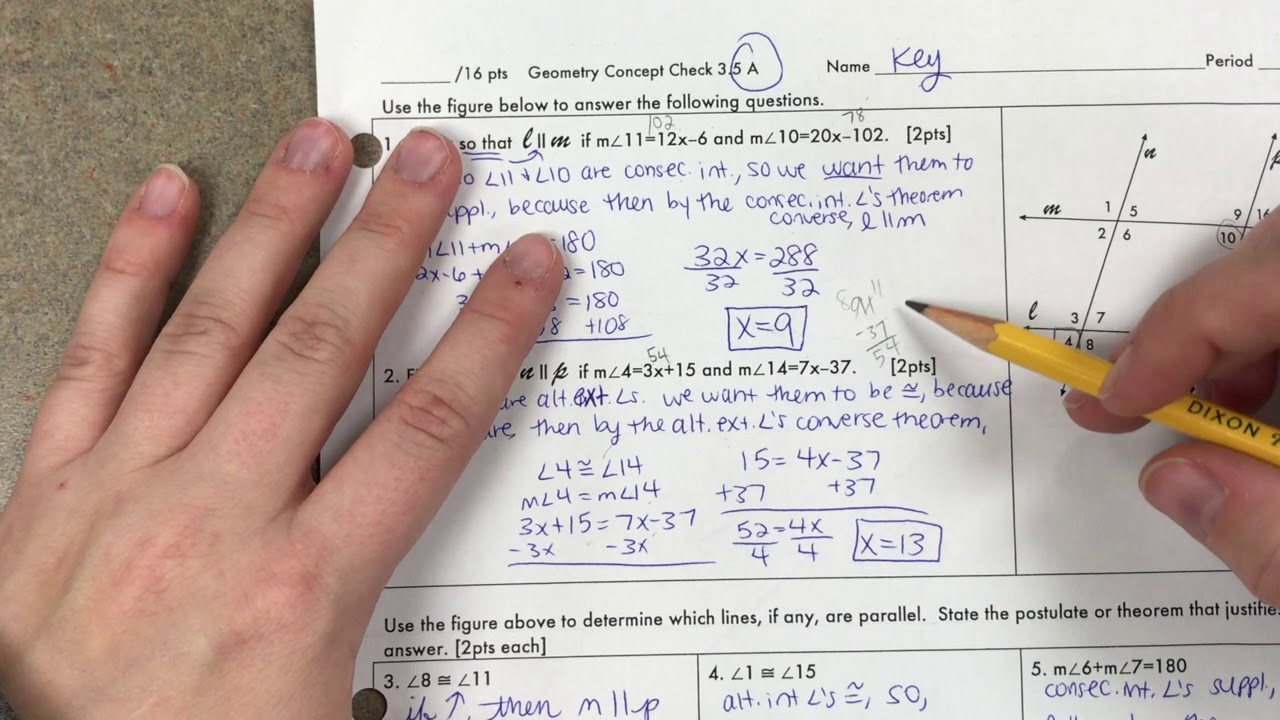 /16 pts Geometry Concept Check 3.5 A Name Key Period
Use the figure below to answer the following questions.
102 78
1 so that l || m if m∠11=12x–6 and m∠10=20x–102. [2pts]
∠11 + ∠10 are consec. int., so we want them to
suppl., because then by the consec. int. ∠'s theorem
converse, l || m
∠11+m =180
2x-6+ =180
=180
+108
32x=288
32 32
x=9
-37
54
54
2. n || p if m∠4=3x+15 and m∠14=7x–37. [2pts]
are alt. ext. ∠s. we want them to be ≅, because
then by the alt. ext. ∠'s converse theorem,
∠4≅∠14
m∠4=m∠14
3x+15=7x-37
-3x -3x
15=4x-37
+37 +37
52=4x
4 4
x=13
n
m 1 5 9
2 6 10
l 3 7
4 8
Use the figure above to determine which lines, if any, are parallel. State the postulate or theorem that
answer. [2pts each]
3. ∠8 ≅ ∠11
if ↑, then m || p
4. ∠1 ≅ ∠15
alt. int ∠'s ≅, so,
5. m∠6+m∠7=180
consec. int. ∠'s suppl.,
DIXON